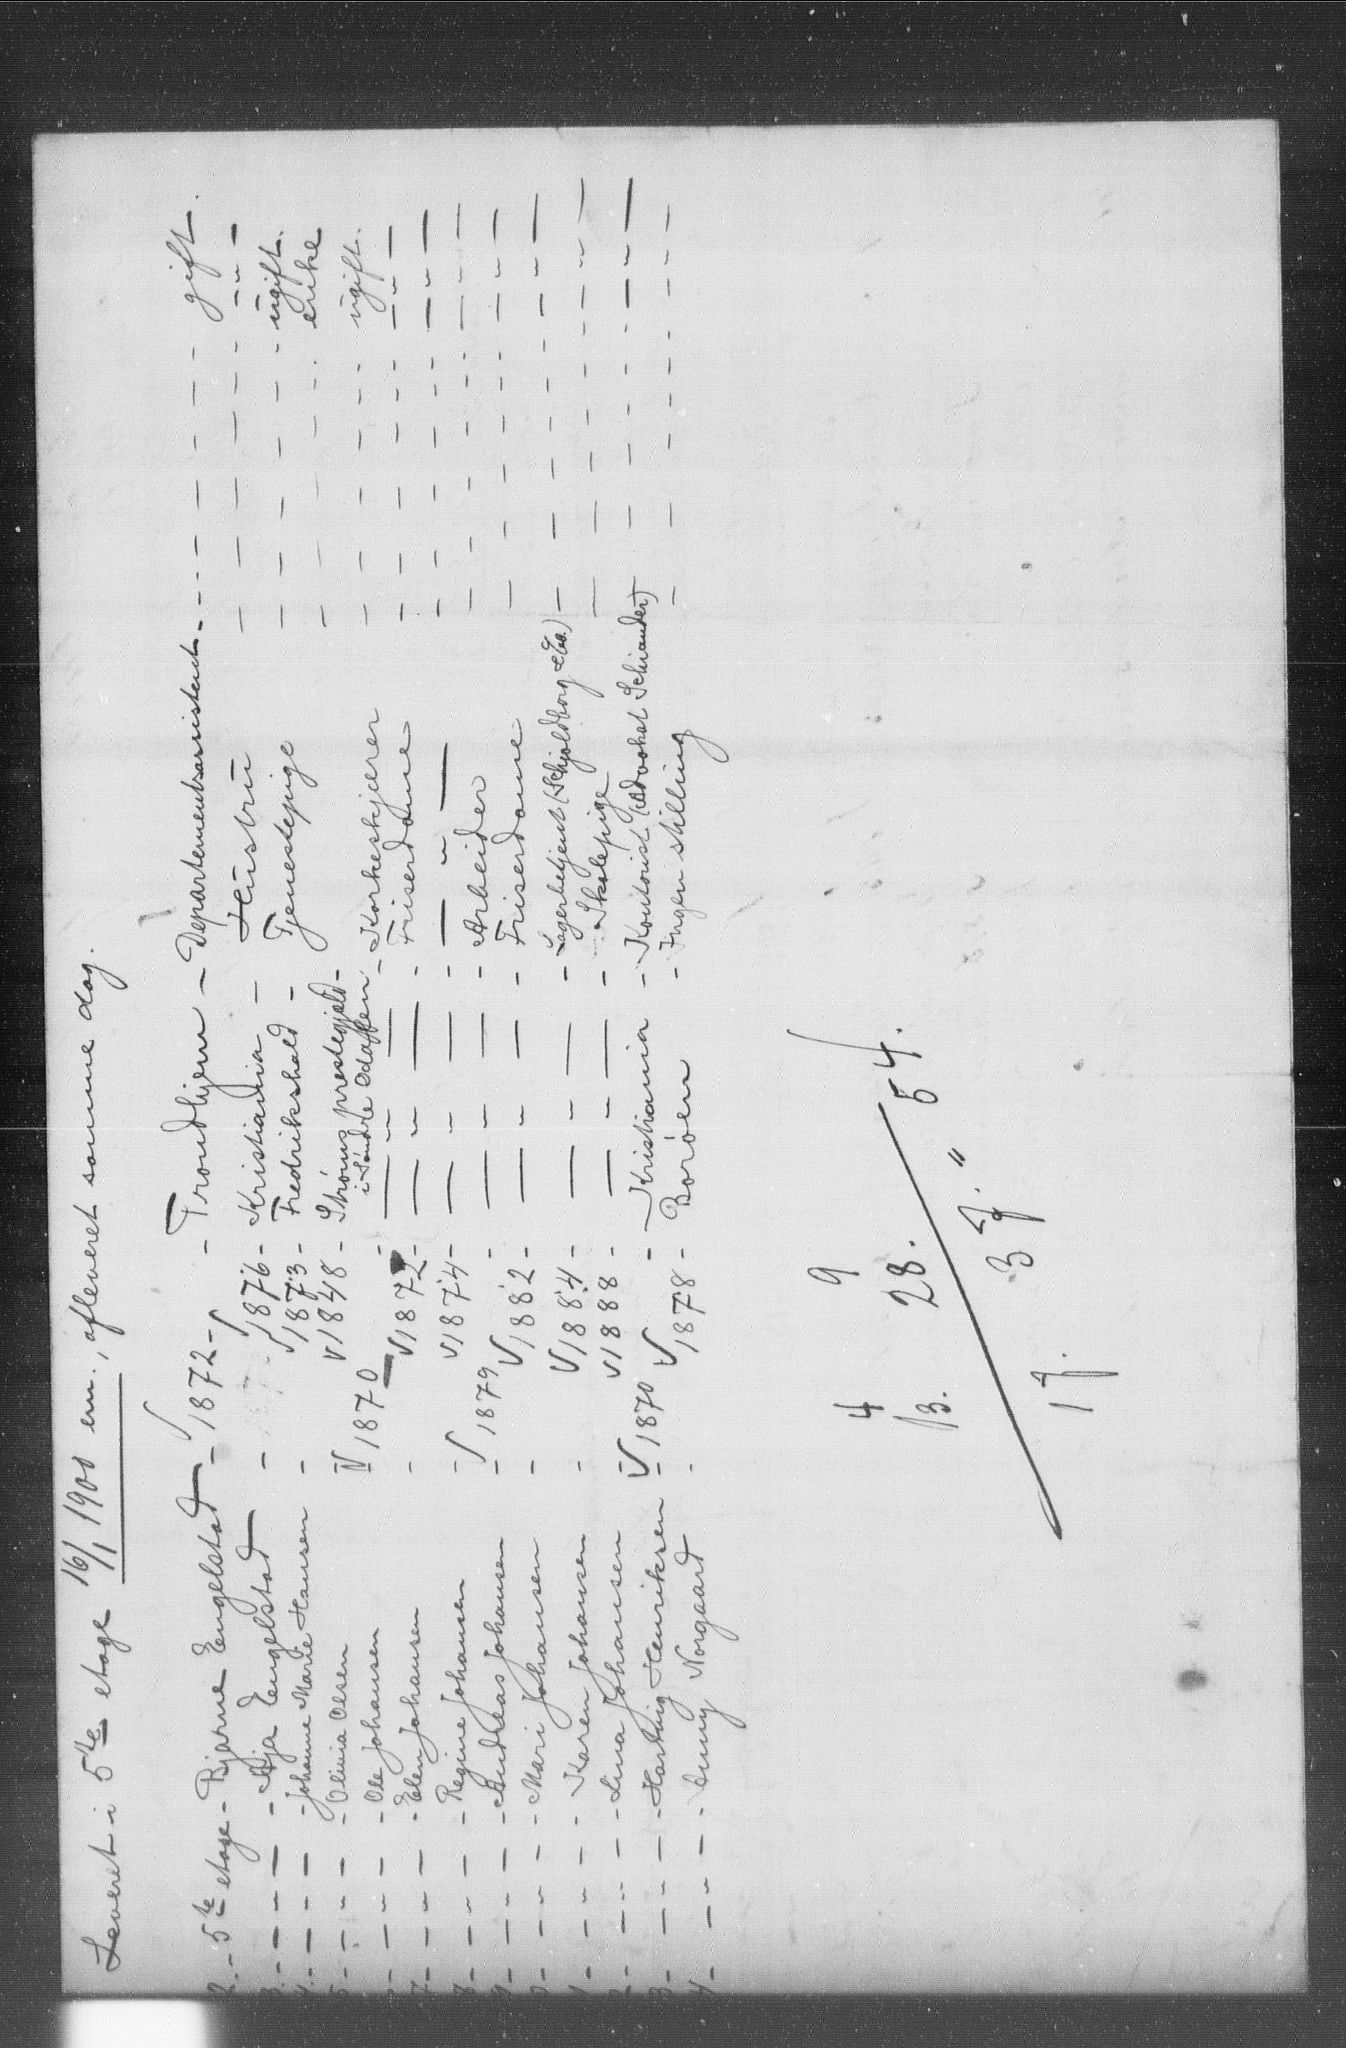 Leveret i 5te etage 16/1 1900 em., afleveret samme dag.
2.- 5te etage - Bjarne Engelstad - 1872 - Trondhjem - Departementsassistent - - - - - - gift.
3.- - " - - Aja Engelstad - 1876 - Kristiania - Hustru - - - - - - " -
4.- - " - - Johanne Marie Hansen - 1873 - Fredrikshald - Tjenestepige - - - - - ugift.
5.- - " - - Olivia Olsen - 1848 - Strøms prestegjeld i Søndre Odalen - - - - - enke
- - " - - Ole Johansen - 1870 - - " - - Korkeskjærer - - - - - ugift.
7- - " - - Elen Johansen - 1872 - - " - - Friserdame - - - - - - " -
8- - " - - Regine Johansen - 1874 - - " - - - " - - - - - - - " -
9- - " - - Andreas Johansen - 1879 - - " - - Arbeider - - - - - - " -
0- - " - - Mari Johansen - 1882 - - " - - Friserdame - - - - - - " -
1- - " - - Karen Johansen - 1884 - - " - - Lagerbetjent (Schjoldborg & Co.) - - - - - " -
2- - " - - Lina Johansen - 1888 - - " - - Skolepige - - - - - - " -
3- - " - - Hartvig Henriksen - 1870 - Kristiania - Kontorist (Advokat Schiander) - - - - - " -
4- - " - - Anny Norgaard - 1878 - Borøen - Ingen stilling - - - - - - " -
4 9
13. 28. 54.
17. 37. "